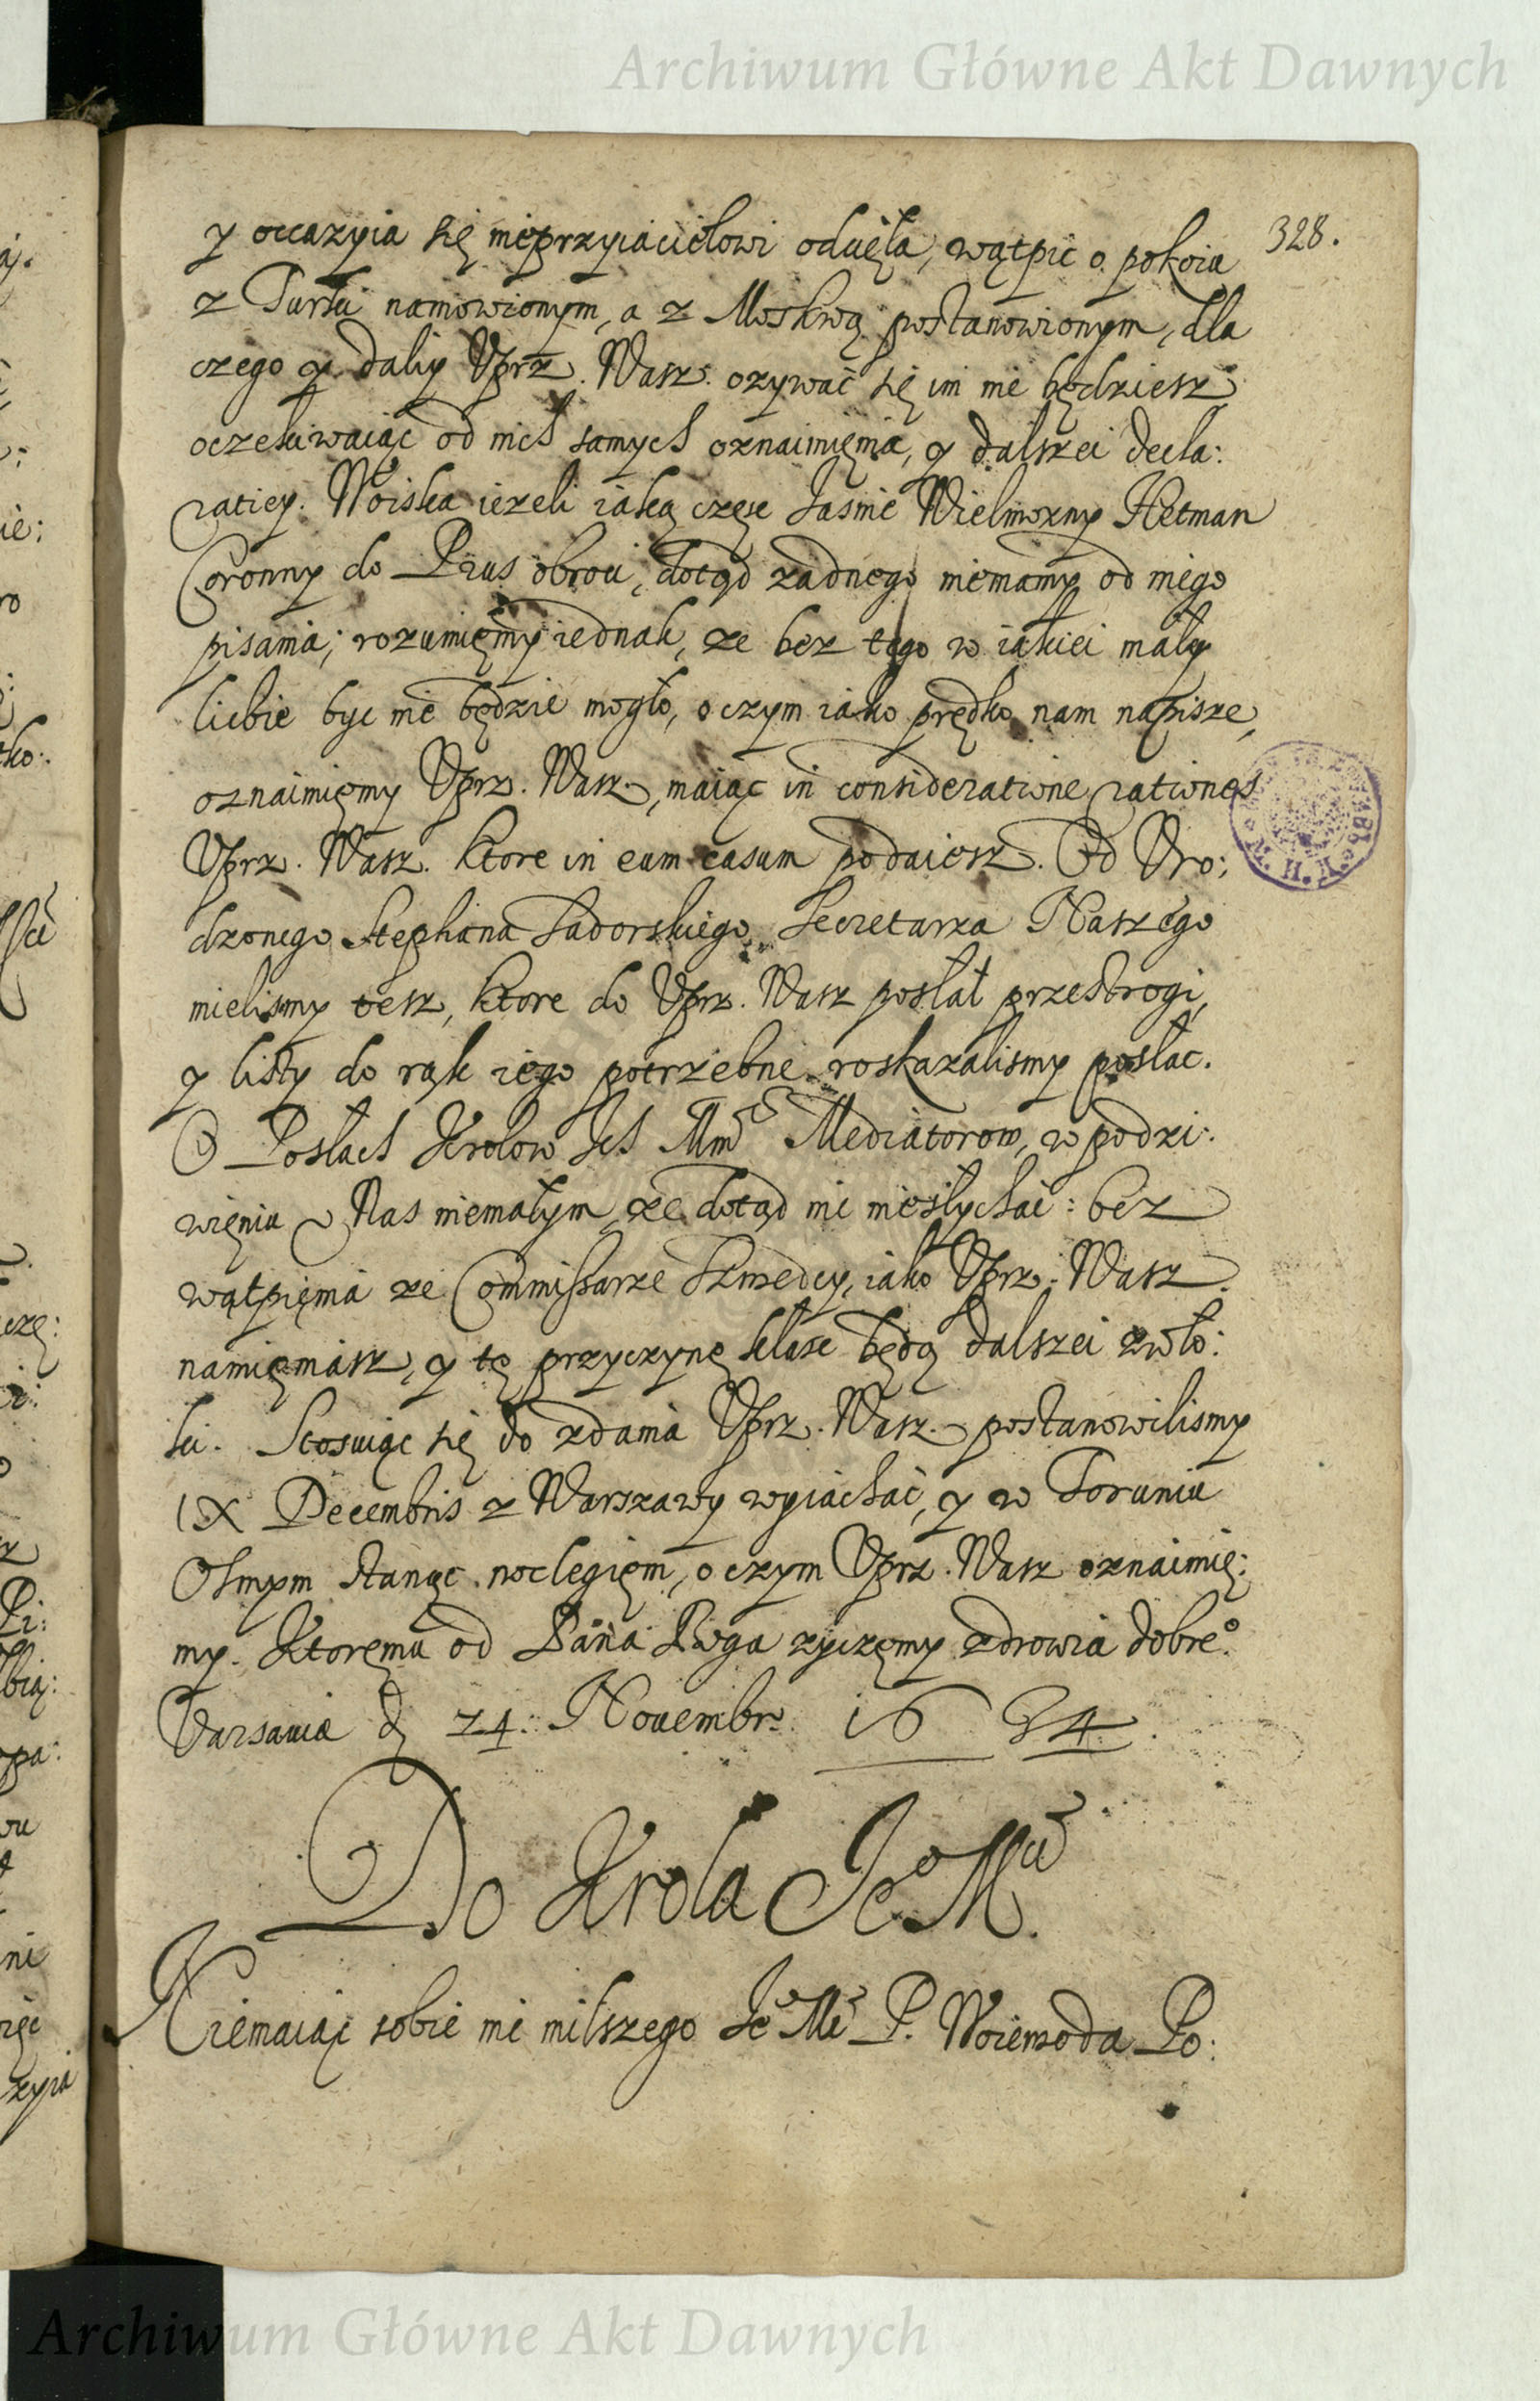 Archiwum Główne Akt Dawnych
328.
y occazyia się nieprzyiacielowi odcięła, wątpic o pokoiu
z Turki namowionym, a z Moskwą postanowionym, dla
czego y daliy Vprz. Wasz. ozywać się im nie będziesz,
oczekiwaiąc od nich samych oznaimięnia, y dalszei decla:
ratiey. Woiska iezeli iaką częsc Jasnie Wielmozny Hetman
Coronny do Prus obroci, dotąd zadnego niemamy od niego
pisania; rozumięmy iednak, ze bez tego w iakiei małey
liczbie byc nie będzie mogło, o czym iako prędko nam napisze,
oznaimięmy Vprz. Wasz., maiąc in consideratione rationes
Vprz. Wasz. ktore in eum casum podaiesz. Od Vro:
dzonego Stephana Sadorskiego Secretarza Naszego
mielismy tesz, ktore do Vprz. Wasz posłał przestrogi,
y listy do rąk iego potrzebne roskazalismy posłac.
O Posłach Krolow Ich Mm Mediatorow, w podzi:
więniu v Nas niemałym, ze dotąd nic niesłychac: bez
wątpięnia ze Commissarze Szwedcy, iako Vprz. Wasz.
namięniasz, y tę przyczynę kłasc będą dalszei zwło:
ki. Stosuiąc się do zdania Vprz. Wasz. postanowilismy
IX Decembris z Warszawy wyiachać, y w Toruniu
Osmym stanąc noclegięm, o czym Vprz. Wasz oznaimię:
my. Ktoremu od Pana Boga zyczęmy zdrowia dobreo.
Varsauia d 24. Nouembr. 1634.
Do Krola Jeo Mci.
Niemaiąc sobie nic milszego Jeo Mc P. Woiewoda Po:
Archiwum Główne Akt Dawnych